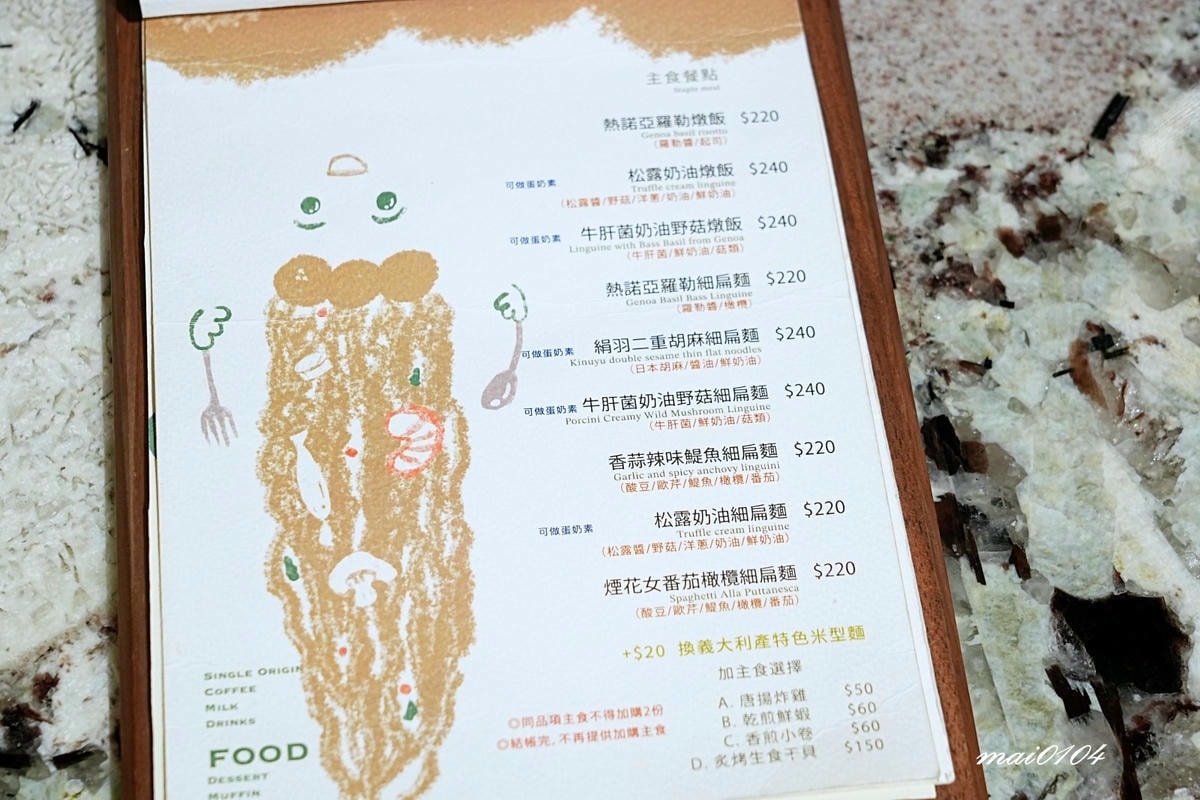 主食餐點
Staple meal
熱諾亞羅勒燉飯 $220
Genoa basil risotto
(羅勒醬/起司)
可做蛋奶素 松露奶油燉飯 $240
Truffle cream linguine
(松露醬/野菇/洋蔥/奶油/鮮奶油)
可做蛋奶素 牛肝菌奶油野菇燉飯 $240
Linguine with Bass Basil from Genoa
(牛肝菌/鮮奶油/菇類)
熱諾亞羅勒細扁麵 $220
Genoa Basil Bass Linguine
(羅勒醬/橄欖)
可做蛋奶素 絹羽二重胡麻細扁麵 $240
Kinuyu double sesame thin flat noodles
(日本胡麻/醬油/鮮奶油)
可做蛋奶素 牛肝菌奶油野菇細扁麵 $240
Porcini Creamy Wild Mushroom Linguine
(牛肝菌/鮮奶油/菇類)
香蒜辣味鯷魚細扁麵 $220
Garlic and spicy anchovy linguini
(酸豆/歐芹/鯷魚/橄欖/番茄)
可做蛋奶素 松露奶油細扁麵 $220
Truffle cream linguine
(松露醬/野菇/洋蔥/奶油/鮮奶油)
煙花女番茄橄欖細扁麵 $220
Spaghetti Alla Puttanesca
(酸豆/歐芹/鯷魚/橄欖/番茄)
+$20 換義大利產特色米型麵
加主食選擇
A. 唐揚炸雞 $50
B. 乾煎鮮蝦 $60
C. 香煎小卷 $60
D. 炙烤生食干貝 $150
◎同品項主食不得加購2份
◎結帳完,不再提供加購主食
SINGLE ORIGIN
COFFEE
MILK
DRINKS
FOOD
DESSERT
MUFFIN
mai0104